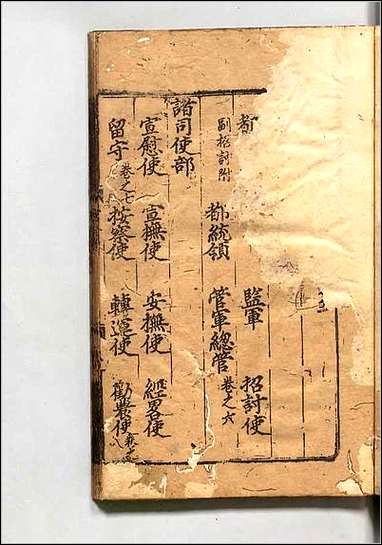 都 監軍 招討使
副招討附 都統領 管軍總管 卷之六
諸司使部
宣慰使 宣撫使 安撫使 經畧使
留守 卷之七 按察使 轉運使 勸農使